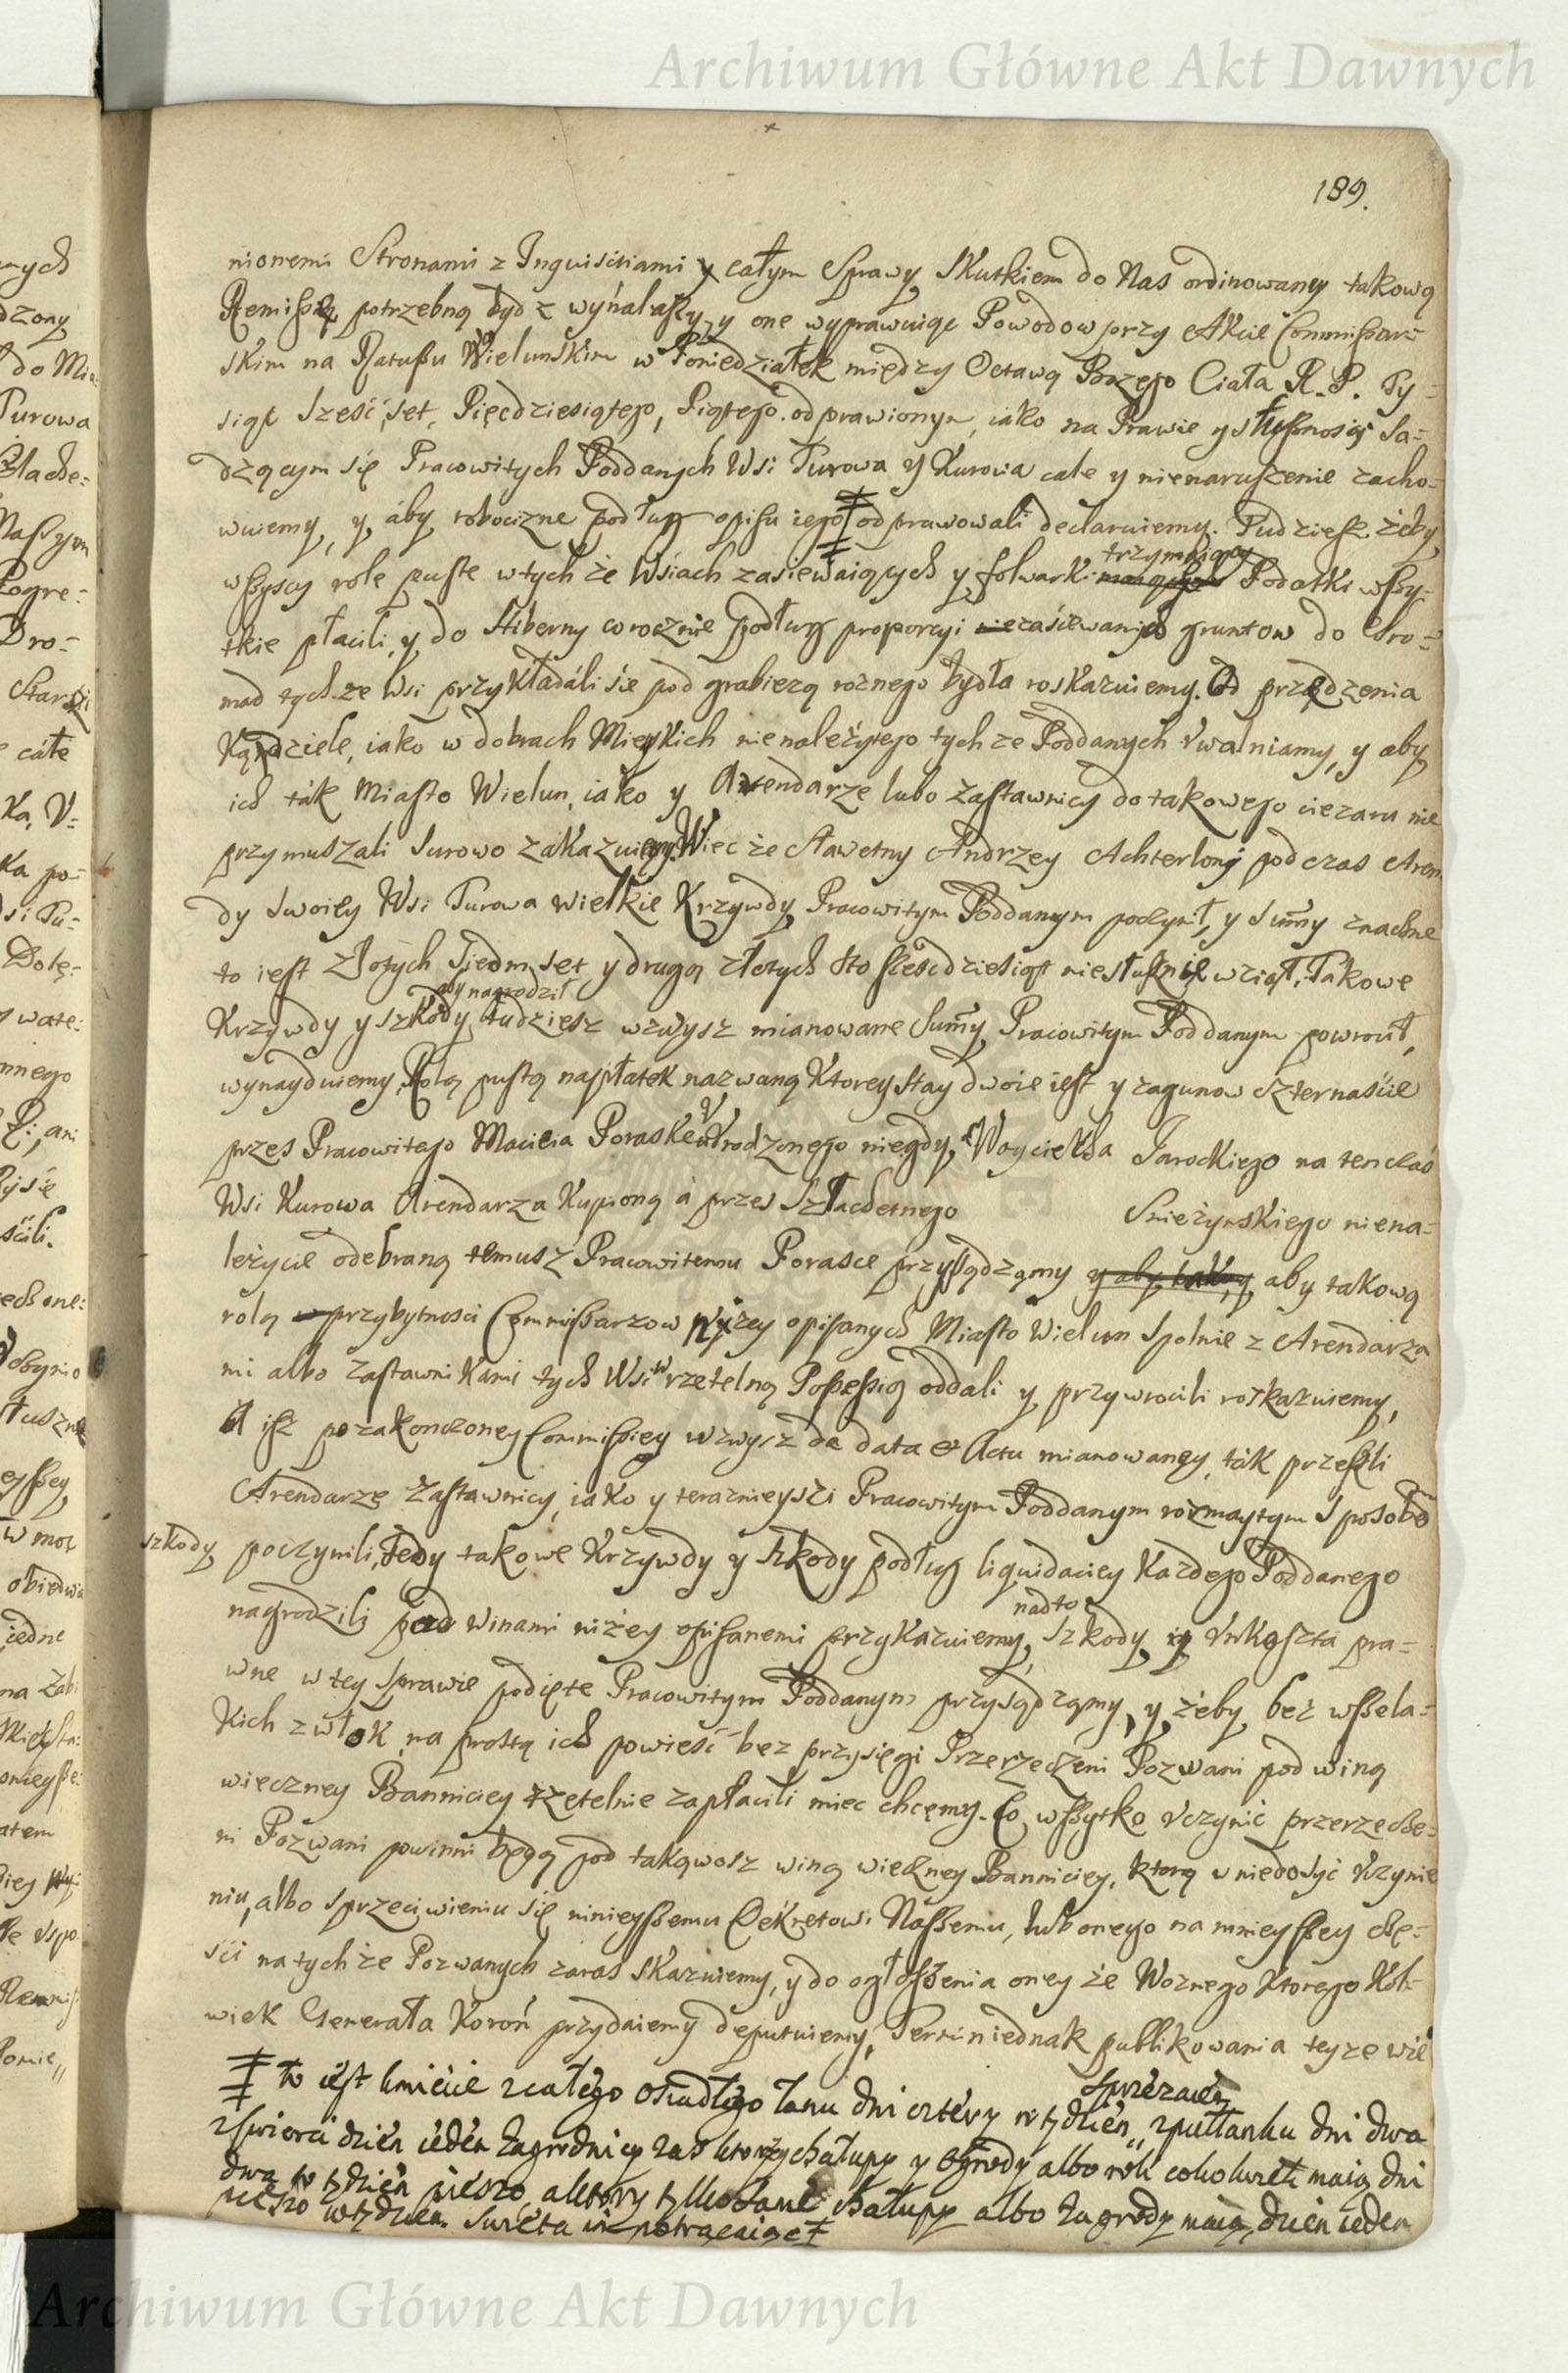 Archiwum Główne Akt Dawnych
189.
nionemi Stronami z Inquisitiami y całym Sprawy Skutkiem do Nas ordinowany takową
Remissię potrzebną bydź wynalaszy, y one wyprawuiąc Powodow przy Akcie Commissar=
skim na Ratuszu Wielunskim w Poniedziałek między Octawą Bożego Ciała R. P. Ty=
siąc Sześć set, Pięcdziesiątego, Piątego odprawionym, iako na Prawie y słusznosci Sa=
dzącym się Pracowitych Poddanych Wsi Turowa y Kurowa cale y nienaruszenie zacho=
wuiemy, y aby robociznę podług opisu iego odprawowali declaruiemy. Tudziesz żeby
trzymaiący
wszyscy role puste wtych że Wsiach zasiewaiących y folwarki Podatki wszy=
tkie płacili, y do Hiberny corocznie podług proporcyi zasiewanych gruntow do Gro=
mad tych ze Wsi przykładali sie pod grabieżą roznego bydła roskazuiemy. Od przędzenia
Kądziele, iako w dobrach Mieyskich nienależytego tych ze Poddanych Uwalniamy, y aby
ich ták Miasto Wielun, iako y Arendarze lubo zastawnicy do takowego ciezaru nie
przymuszali surowo zakazuiemy. Wiec że Sławetny Andrzey Achterlony podczas Aren
dy swoiey Wsi Turowa wielkie Krzywdy Pracowitym Poddanym poczynił, y Summy znaczne
to iest Złotych Siedm set y drugą złotych sto sześcdziesiąt niesłusznie wziął, Takowe
aby nagrodził
Krzywdy y szkody tudziesz wzwysz mianowane Summy Pracowitym Poddanym powrocił,
wynayduiemy, Rolą pustą napłatek nazwaną Ktorey Stay dwoie iest y zagunow czternaście
przes Pracowitego Macieia Poraskę u Urodzonego niegdy Woyciecha Jarockiego na tenczas
Wsi Kurowa Arendarza Kupioną á przes Szlachetnego Snieżynskiego niena=
leżycie odebraną temusz Pracowitemu Porasce przysądzamy aby takową
rolą przybytnosci Commissarzow niżey opisanych Miasto Wielun Spolnie z Arendarza
mi albo zastawnikami tych Wsi w rzetelną Possessią oddali y przywrocili roskazuiemy,
A isz po zakonczoney Commissiey wzwysz de data et Actu mianowaney, ták przeszli
Arendarze Zastawnicy, iako y teraznieyszi Pracowitym Poddanym rozmaytym Sposobe
szkody poczynili, Tedy takowe Krzywdy y szkody podług liquidaciey Kazdego Poddanego
nadto
nagrodzili pod winami niżey opisanemi przykazuiemy, szkody y Unkoszta pra=
wne w tey sprawie podięte Pracowitym Poddanym przysądzamy, y żeby bez wszela=
kich zwłok na prostą ich powieść bez przysięgi Przerzeczeni Pozwani pod winą
wieczney Banniciey rzetelnie zapłacili miec chcemy. Co wszytko Uczynić przerzecze=
ni Pozwani powinni będą pod takąwosz winą wieczney Banniciey, ktorą w niedosyć Uczynie
niu, albo sprzeciwieniu się ninieyszemu Dekretowi Naszemu, lub onego na mnieyszey czę=
ści na tych że Pozwanych zaras skazuiemy, y do ogłoszenia oney że Woznego Ktorego Kol=
wiek Generała Koroń przydaiemy deputuiemy, Termin iednak publikowania teyze wie
to iest kmiecie z całego osiadłego łanu dni cztery w tydzień
sprzezaiem
z pułłanku dni dwa
z swierci dzień ieden Zagrodnicy zas ktorzy chałupy y ogrody albo roli cokolwiek maią dni
dwa w tydzień pieszo, a ktorzy tylko same chałupy albo Zagrody maią, dzień ieden
pieszo w tydzien. Swięta nie potrącaiąc
Archiwum Główne Akt Dawnych